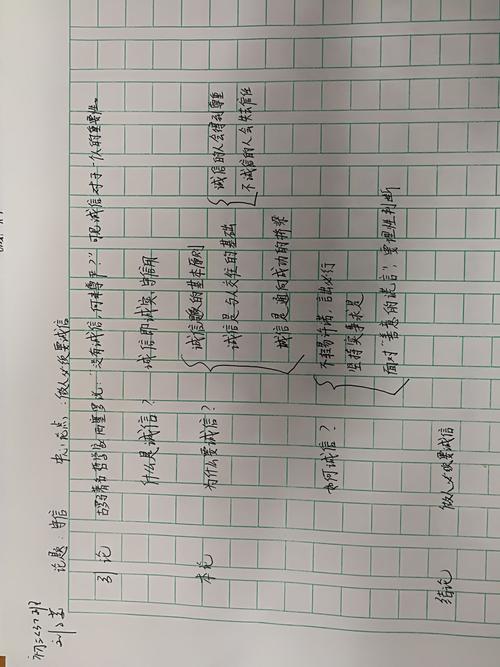 论题：守信　中心论点：做人必须要诚信
引论　古罗马著名哲学家西塞罗说：“没有诚信，何来尊严？”可见诚信对于一个人的重要性。
什么是诚信？　诚信即诚实、守信用
本论　为什么要诚信？
诚信是的基本原则
诚信是与人交往的基础
诚信的人会得到尊重
不诚信的人会失去信任
诚信是通向成功的桥梁
如何诚信？
不轻易许诺，言出必行
坚持实事求是
面对“善意的谎言”，要理性判断
结论　做人必须要诚信